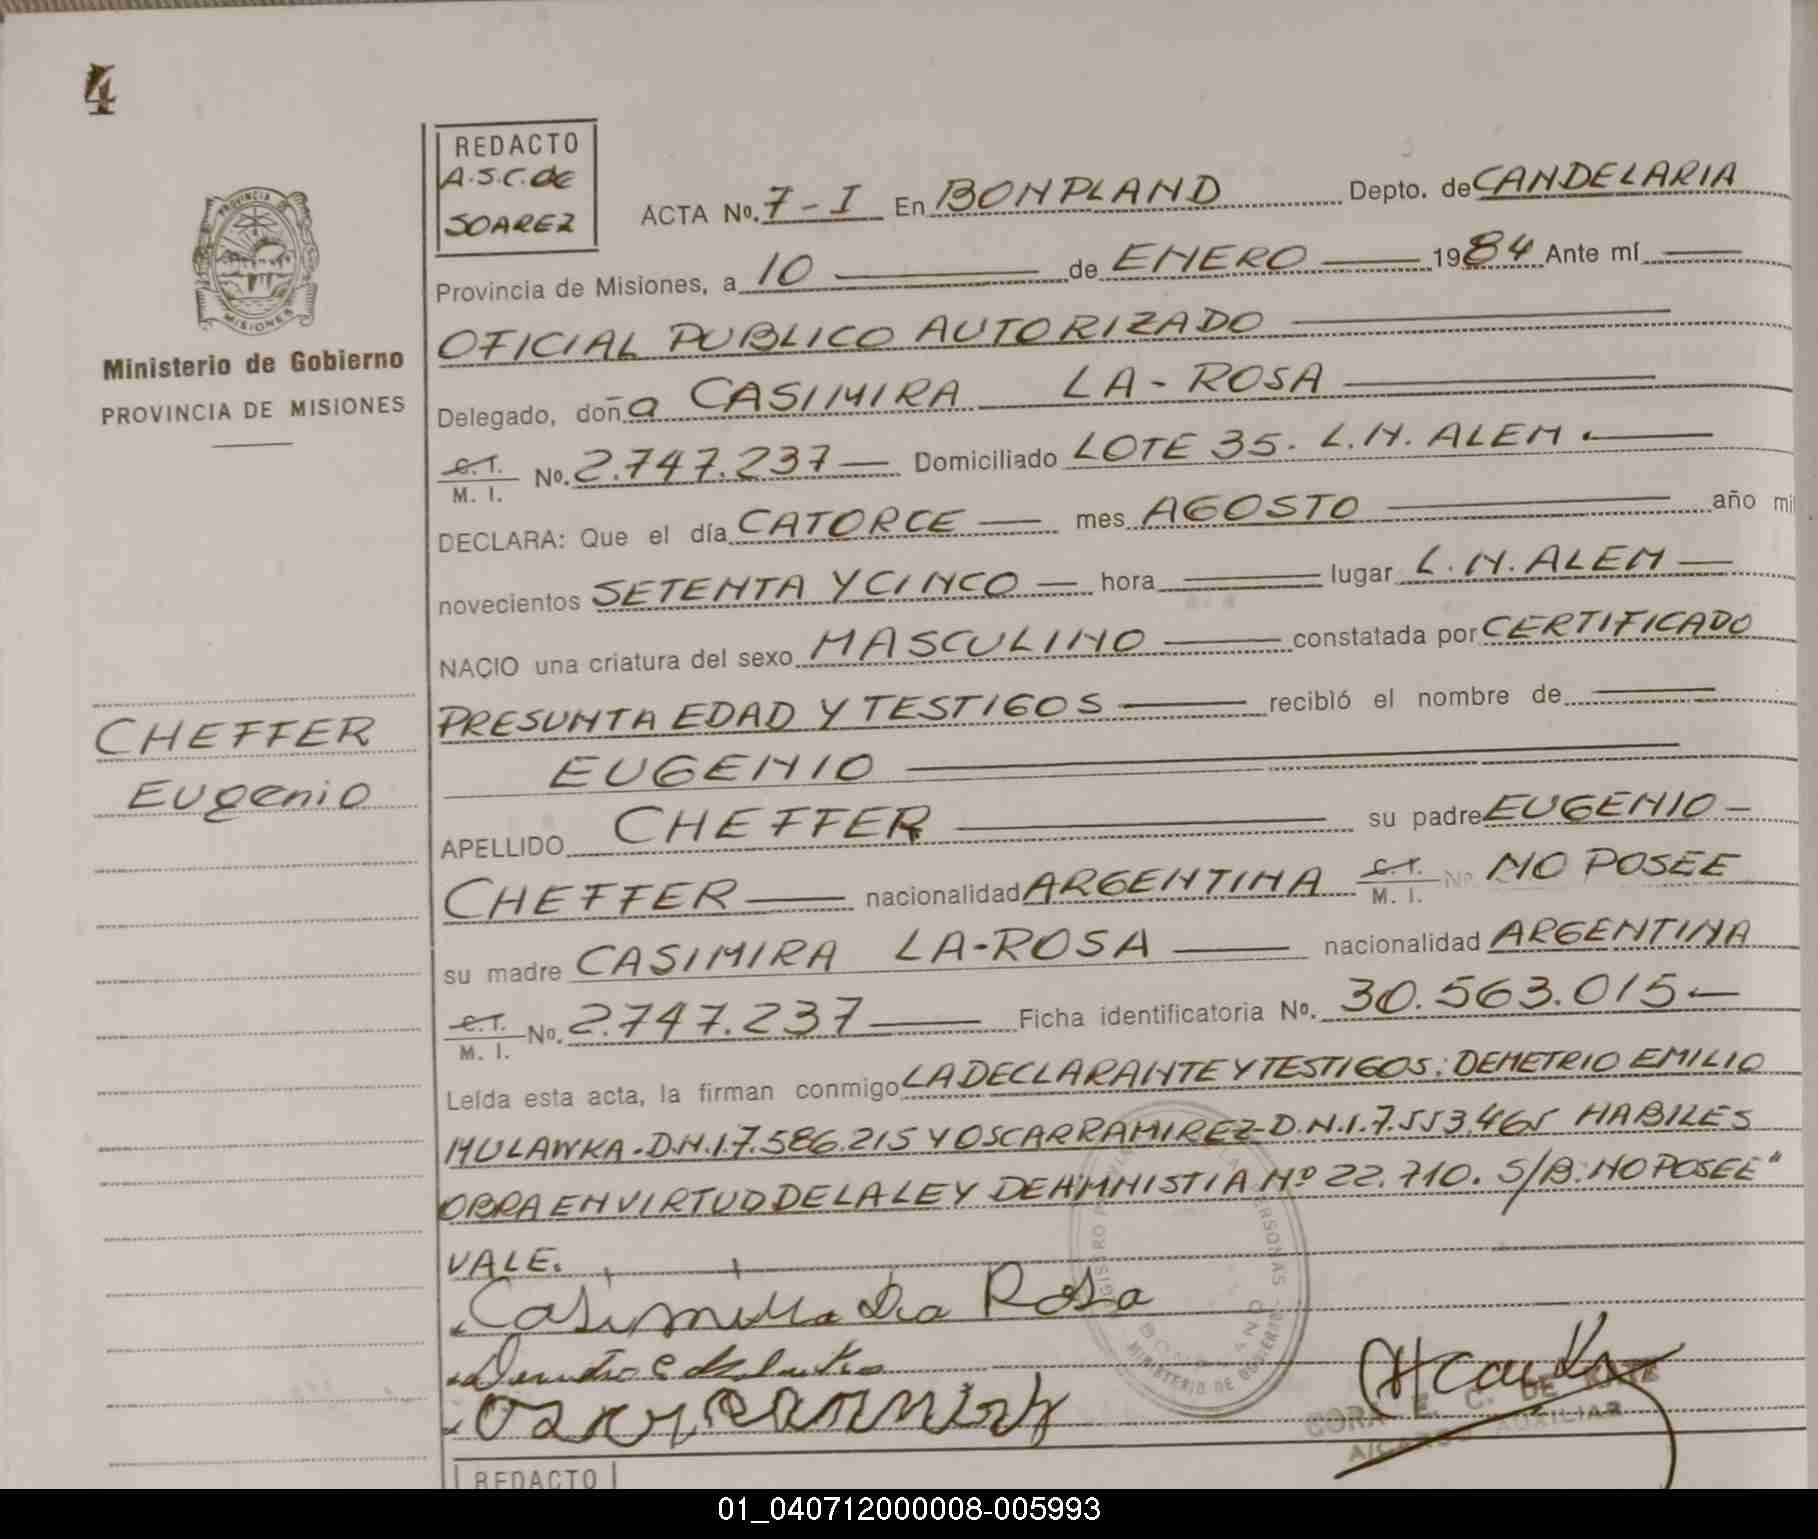 4
REDACTO
A.S.C. de
SOAREZ
ACTA No. 7-I En BONPLAND Depto. de CANDELARIA
Provincia de Misiones, a 10 de ENERO 1984 Ante mí
OFICIAL PUBLICO AUTORIZADO
Delegado, doña CASIMIRA LA-ROSA
C.I. M. I. No. 2.747.237 Domiciliado LOTE 35. L.N. ALEM.
DECLARA: Que el día CATORCE mes AGOSTO año mil
novecientos SETENTA Y CINCO hora lugar L.N. ALEM
NACIO una criatura del sexo MASCULINO constatada por CERTIFICADO
PRESUNTA EDAD Y TESTIGOS recibió el nombre de
EUGENIO
APELLIDO CHEFFER su padre EUGENIO
CHEFFER nacionalidad ARGENTINA C.I. M. I. No NO POSEE
su madre CASIMIRA LA-ROSA nacionalidad ARGENTINA
C.I. M. I. No. 2.747.237 Ficha identificatoria No. 30.563.015
Leída esta acta, la firman conmigo LA DECLARANTE Y TESTIGOS: DEMETRIO EMILIO
MULAWKA. D.N.I. 7.586.215 Y OSCAR RAMIREZ D.N.I. 7.553.465 HABILES
OBRA EN VIRTUD DE LA LEY DE AMNISTIA Nº 22.710. S/B: NO POSEE"
VALE.
Casimira La Rosa
PROVINCIA DE
MISIONES
Ministerio de Gobierno
PROVINCIA DE MISIONES
CHEFFER
Eugenio
MINISTERIO DE GOBIERNO
CORA E. C. DE
A/CARGO AUXILIAR
REDACTO
01_040712000008-005993